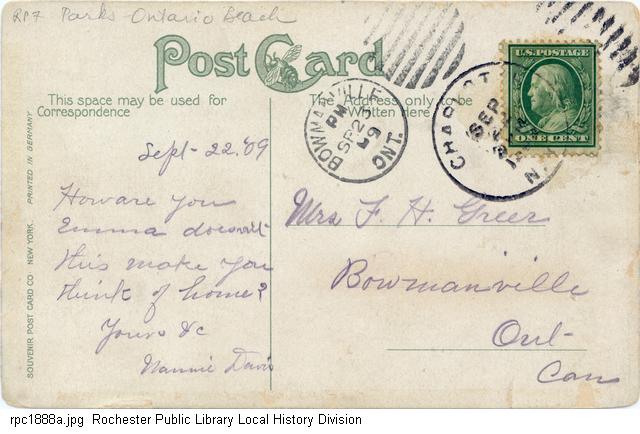 RP7 Parks - Ontario Beach
Post Card
This space may be used for
Correspondence
The Address only to be
Written Here
BOWMANVILLE
PM
SP 23
09
ONT.
CHARLOTTE
SEP
N
U.S. POSTAGE
ONE CENT
Sept - 22 '09
How are you
Emma doesn't
this make you
think of home?
Yours &c
Nannie Davis
Mrs F. H. Greer
Bowmanville
Ont-
Can
PRINTED IN GERMANY
SOUVENIR POST CARD CO NEW YORK.
rpc1888a.jpg Rochester Public Library Local History Division